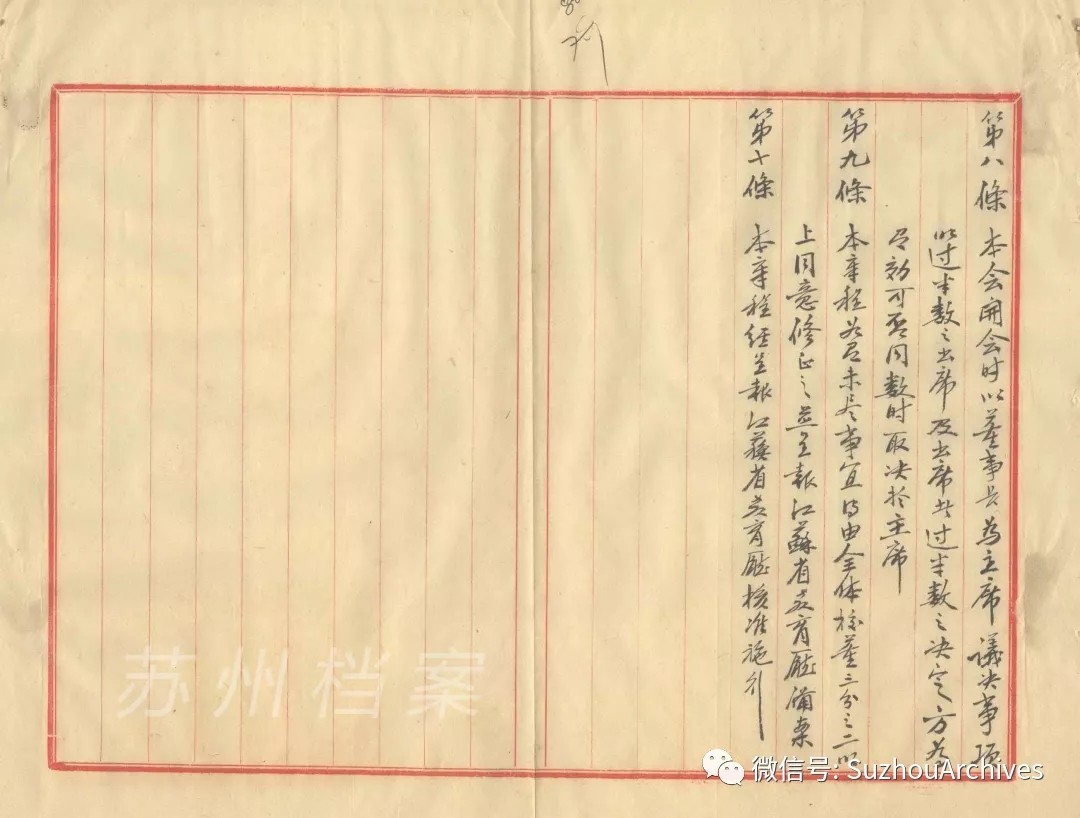 第八條 本会開会时以董事长為主席議决事項
以过半数之出席及出席者过半数之决定方為
有効可否同数时取决於主席
第九條 本章程如有未尽事宜得由全体校董三分之二以
上同意修正之並呈報江蘇省教育廳備案
第十條 本章程經呈報江蘇省教育廳核准施行
苏州档案
微信号: SuzhouArchives